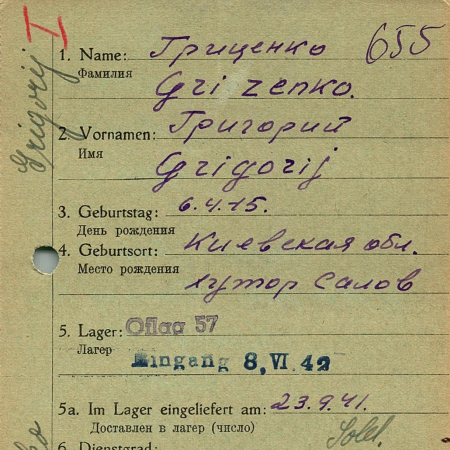 I
655
Grigorij
1. Name: Гриценко
Фамилия
Grizenko.
2. Vornamen: Григорий
Имя
Grigorij
3. Geburtstag: 6.4.15.
День рождения
4. Geburtsort: Киевская обл.
Место рождения
хутор Салов
5. Lager: Oflag 57
Лагерь
Eingang 8, VI. 42
5a. Im Lager eingeliefert am: 23.9.41.
Доставлен в лагерь (число)
Sold.
6. Dienstgrad: